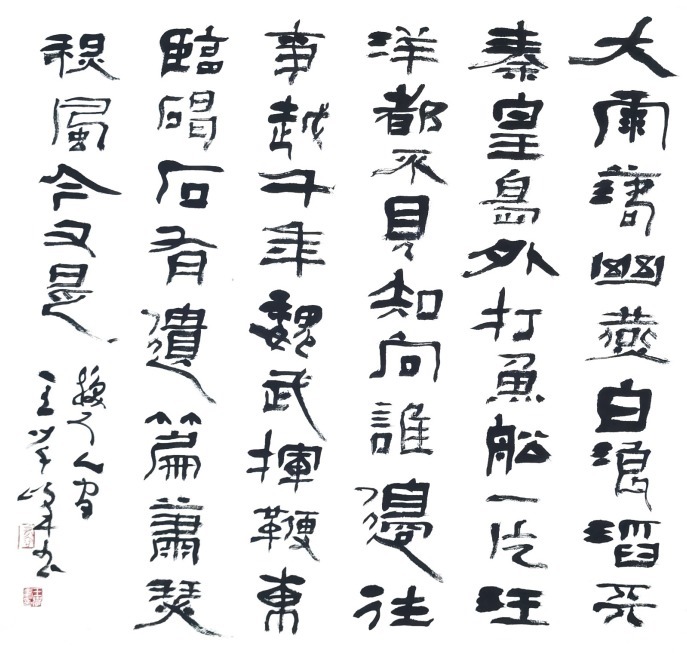 大雨落幽燕白浪滔天
秦皇島外打魚船一片汪
洋都不見知向誰邊往
事越千年魏武揮鞭東
臨碣石有遺篇蕭瑟
秋風今又是
換了人間